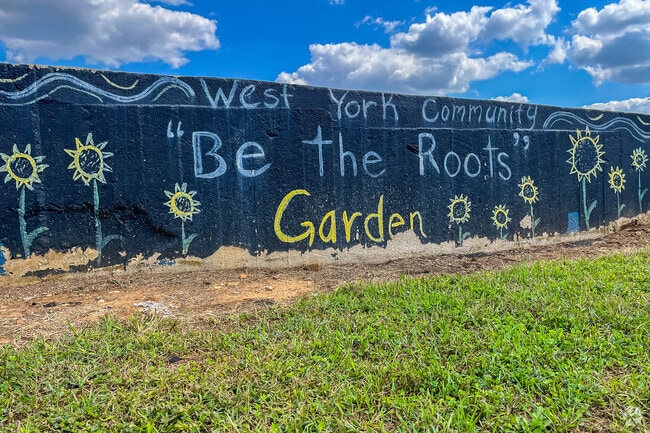 West York Community
"Be the Roots"
Garden